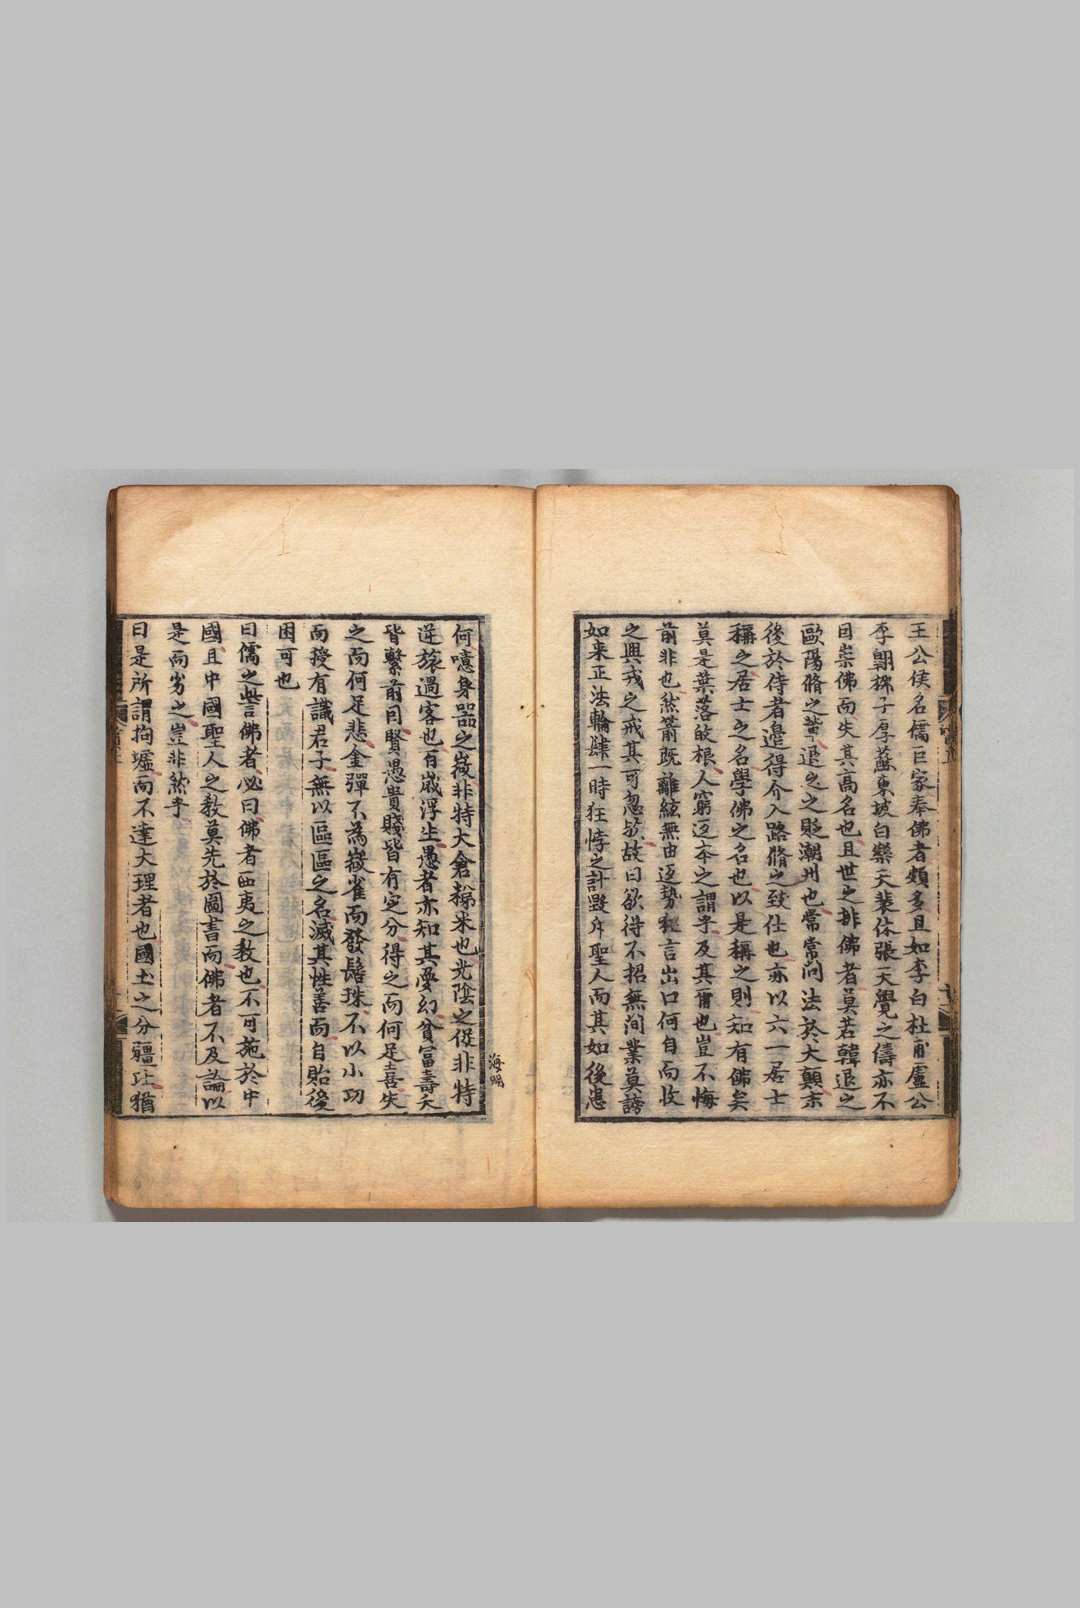 王公侯名儒巨家奉佛者頗多且如李白杜甫盧公
李翶柳子厚蘇東坡白樂天裴休張天覺之儔亦不
因崇佛而失其高名也且世之排佛者莫若韓退之
歐陽脩之輩退之之貶潮州也常常問法於大顚末
後於侍者邉得介入路脩之致仕也亦以六一居士
稱之居士之名學佛之名也以是稱之則知有佛矣
莫是葉落皈根人窮返本之謂乎及其爾也豈不悔
前非也然箭旣離絃無由返勢秪言出口何自而收
之興戎之戒其可忽歟故曰欲得不招無間業莫謗
如来正法輪肆一時狂悖之計毀斥聖人而其如後患
何噫身器之㣲非特大倉稊米也光陰之促非特
逆旅過客也百歲浮生愚者亦知其夢幻貧冨壽夭
皆繫前因賢愚貴賤皆有㝎分得之而何足喜失
之而何足悲金彈不為㣲雀而發髻珠不以小功
而授有識君子無以區區之名滅其性善而自貽後
困可也
曰儒之訾佛者必曰佛者西夷之教也不可施於中
國且中國聖人之教莫先於圖書而佛者不及論以
是而劣之豈非然乎
曰是所謂拘墟而不達大理者也國土之分疆圵猶
海明